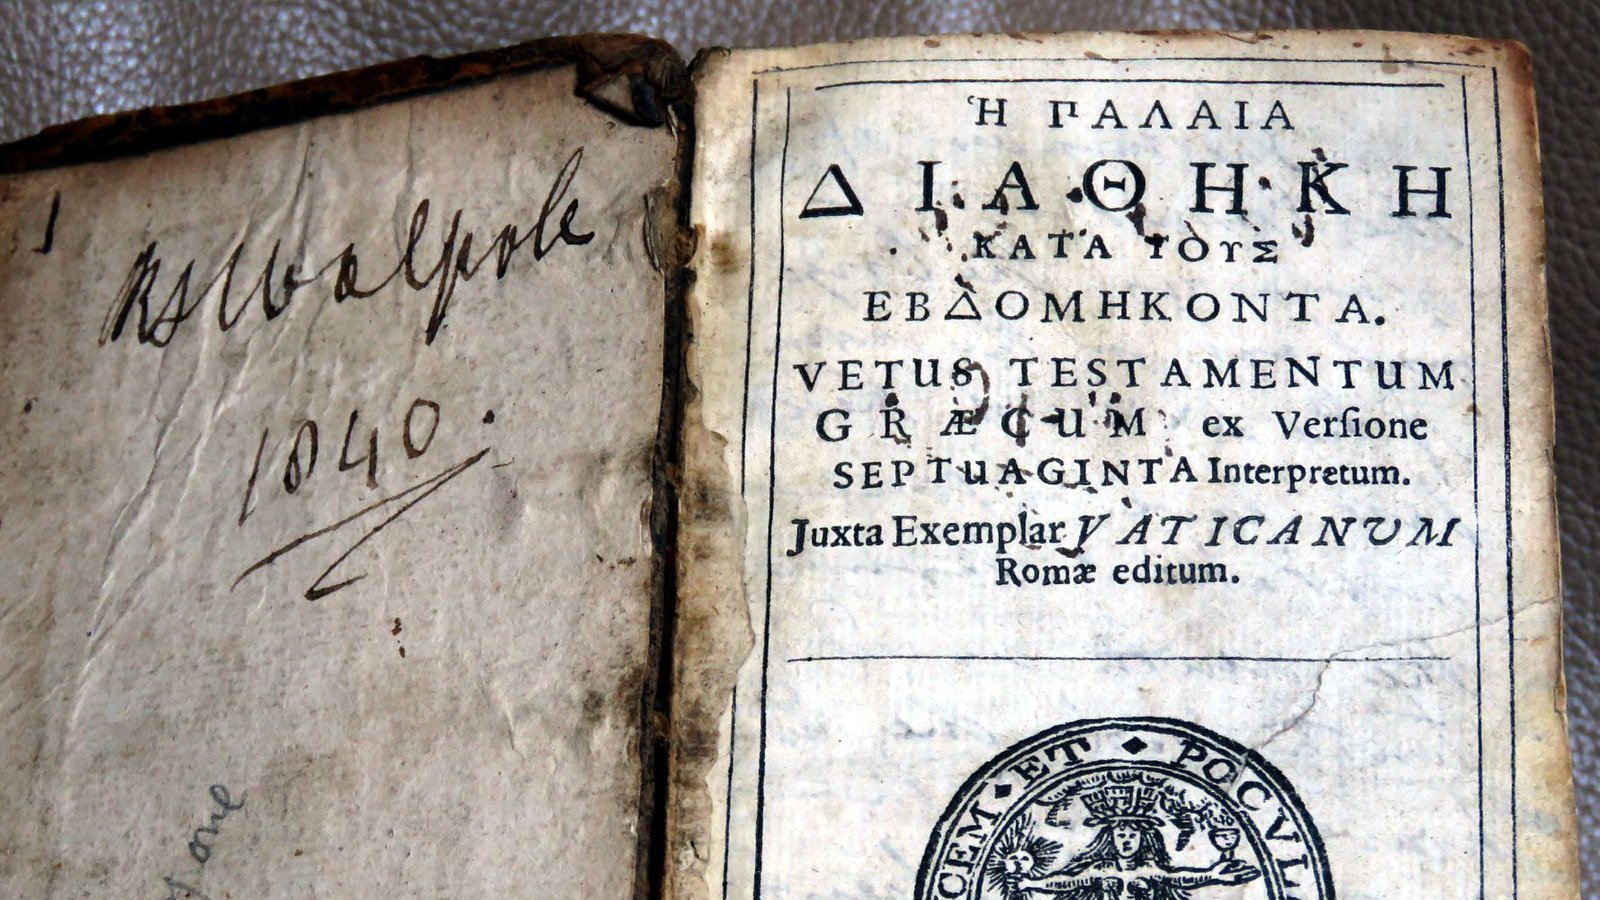 RS Walpole
1840.
one
Ἡ ΠΑΛΑΙΑ
ΔΙΑΘΗΚΗ
ΚΑΤΑ ΤΟΥΣ
ΕΒΔΟΜΗΚΟΝΤΑ.
VETUS TESTAMENTUM
GRÆCUM ex Verſione
SEPTUAGINTA Interpretum.
Juxta Exemplar VATICANUM
Romæ editum.
CEM ET POCUL